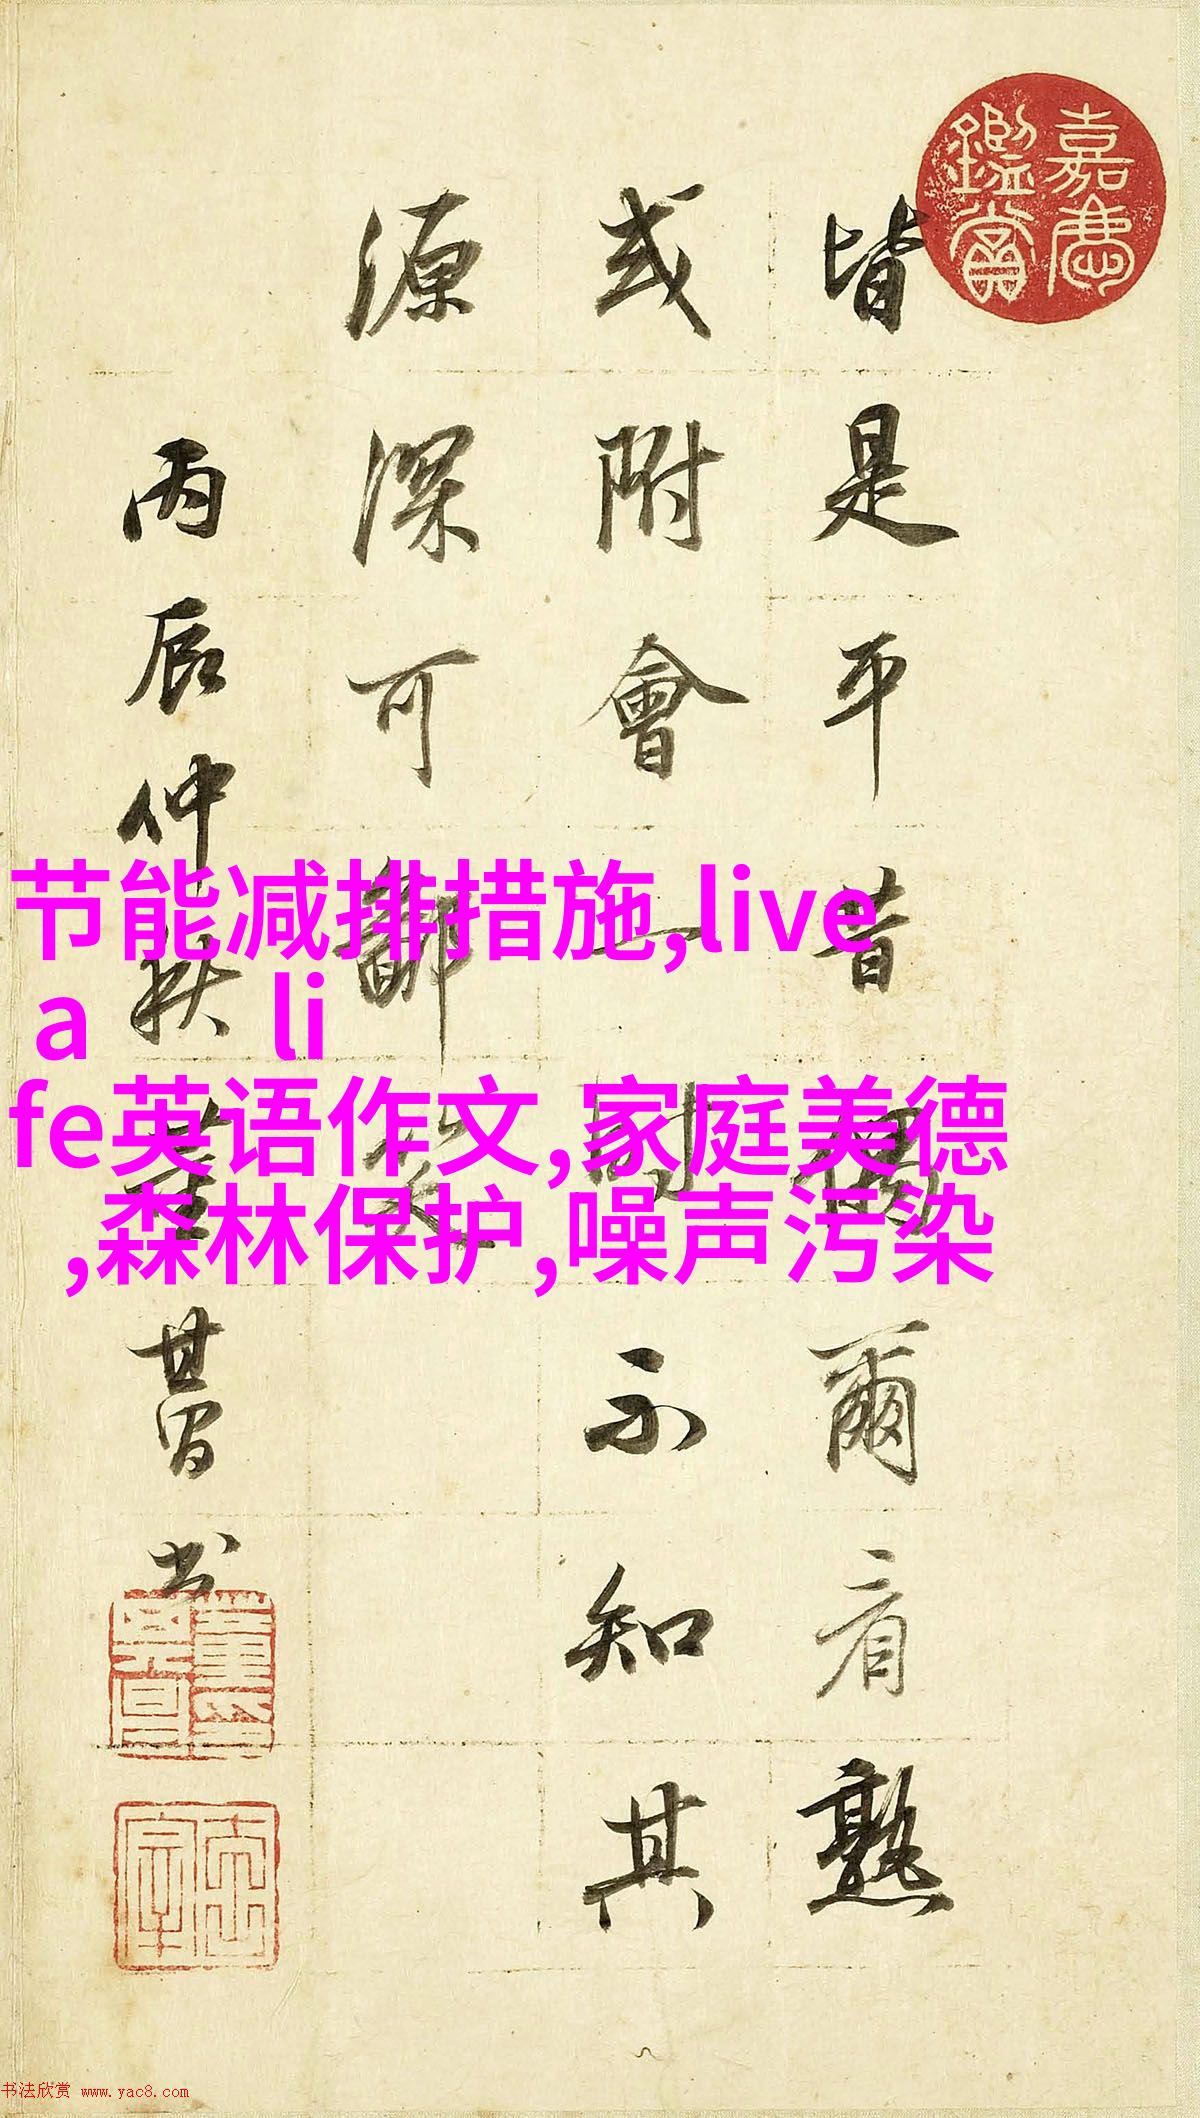 嘉慶
鑑賞
皆是平昔偶爾看熟
或附會一時不知其
源深可鄙笑
丙辰仲秋董其昌书
节能减排措施,live
a li
fe英语作文,家庭美德
,森林保护,噪声污染
书法欣赏 www.yac8.com